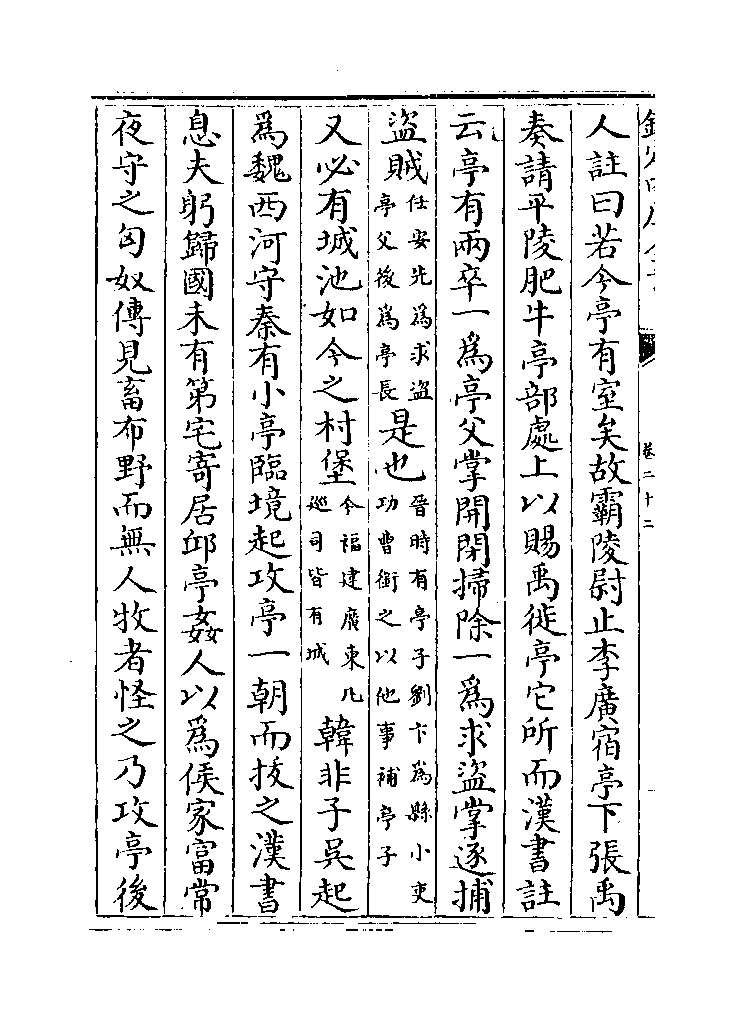 欽定四庫全書
卷二十二
人註曰若今亭有室矣故霸陵尉止李廣宿亭下張禹
奏請平陵肥牛亭部處上以賜禹徙亭它所而漢書註
云亭有兩卒一為亭父掌開閉掃除一為求盜掌逐捕
盜賊任安先為求盜亭父後為亭長是也晉時有亭子劉卞為縣小吏功曹銜之以他事補亭子
又必有城池如今之村堡今福建廣東凡巡司皆有城韓非子吳起
為魏西河守秦有小亭臨境起攻亭一朝而拔之漢書
息夫躬歸國未有第宅寄居邱亭姦人以為侯家富常
夜守之匈奴傳見畜布野而無人牧者怪之乃攻亭後